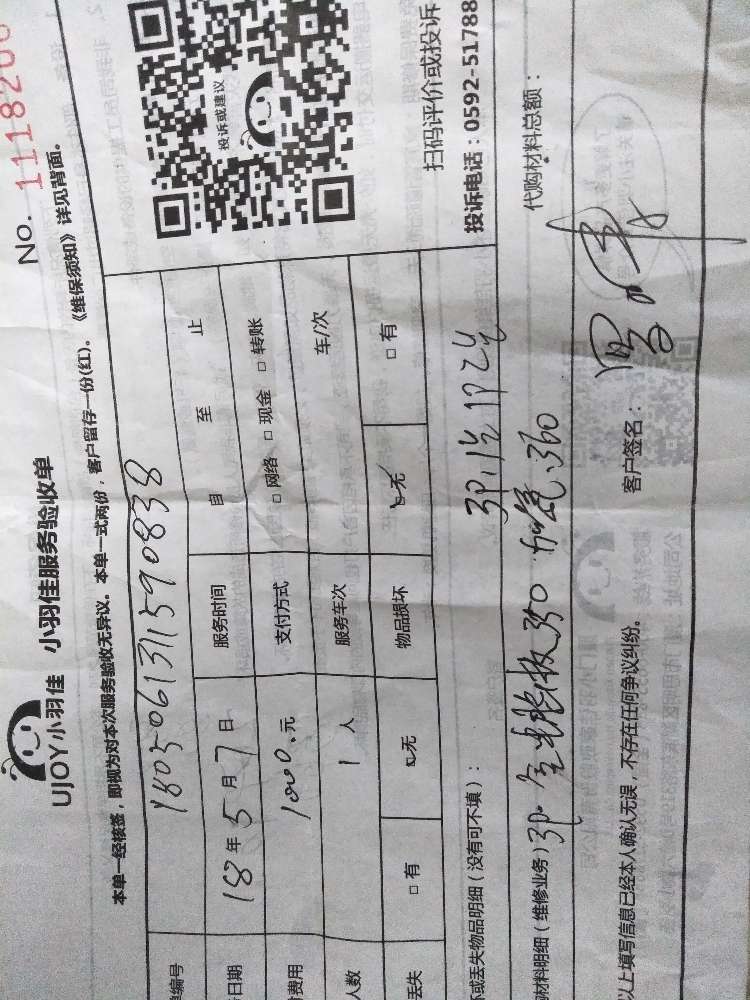 UJOY小羽佳 小羽佳服务验收单
No. 1118200
本单一经接签，即视为对本次服务验收无异议。本单一式两份，客户留存一份(红)。《维保须知》详见背面。
单编号 180506131159 0838
日期 18年5月7日 服务时间 自 至 止
费用 1000.元 支付方式 □网络 □现金 □转账
人数 1人 服务车次 车/次
丢失 □有 □无 物品损坏 □无 □有
投诉或建议
扫码评价或投诉
投诉电话：0592-51788
坏或丢失物品明细（没有可不填）：
材料明细（维修业务）3P. 350 加氟.360
代购材料总额：
以上填写信息已经本人确认无误，不存在任何争议纠纷。
客户签名：